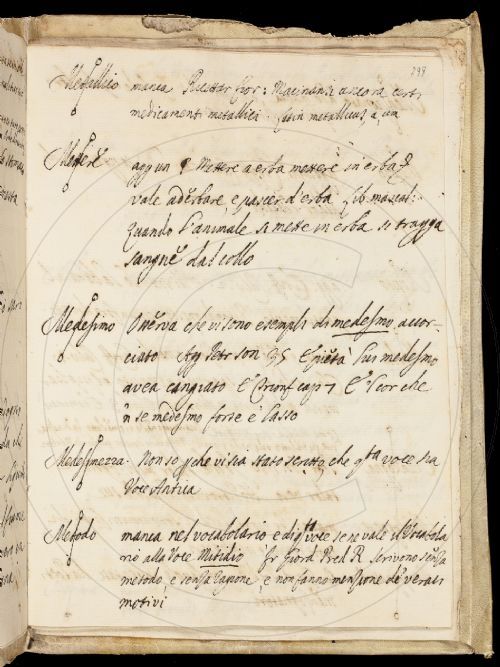 298
Metallico manca Ricettar fior: Macinansi ancora certi
medicamenti metallici latin metallicus, a, um
Mettere aggiun Mettere a erba mettere in erba
vale aderbare, e pascer d'erba Lib mascal:
Quando l'animale si mette in erba si tragga
sangue dal collo
Medesimo Osserva che vi sono esempli di medesmo accor-
ciato Petr son 35 E pietà lui medesmo
avea cangiato E cap 7 E l cor che
n se medesmo forse è lasso
Medesimezza Non so pche vi sia stato scritto, che qta voce sia
Voce Antica
Metodo manca nel vocabolario e di qta voce se ne vale il Vocabola
rio alla Voce Mitidio fr Giord Pred R scrivono senza
metodo, e senza ragione, e non fanno menzione de' veraci
motivi